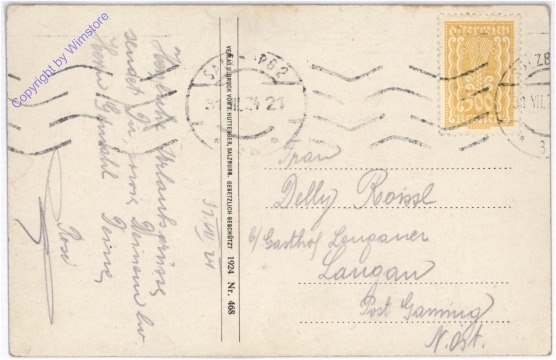 Copyright by Wimstore
Herzliche Urlaubsgrüsse
sendet Dir sowie
Deinem
Herrn Gemahl
Deine
Rosl
31. VII. 24
VERLAG U. DRUCK VON HUTTEGGER, SALZBURG. GESETZLICH GESCHÜTZT 1924 Nr. 468
SALZBURG 2
31. VII. 24 21
Österreich
500
Frau
Delly Roissl
Gasthof
Langau
Post Gaming
N. Öst.